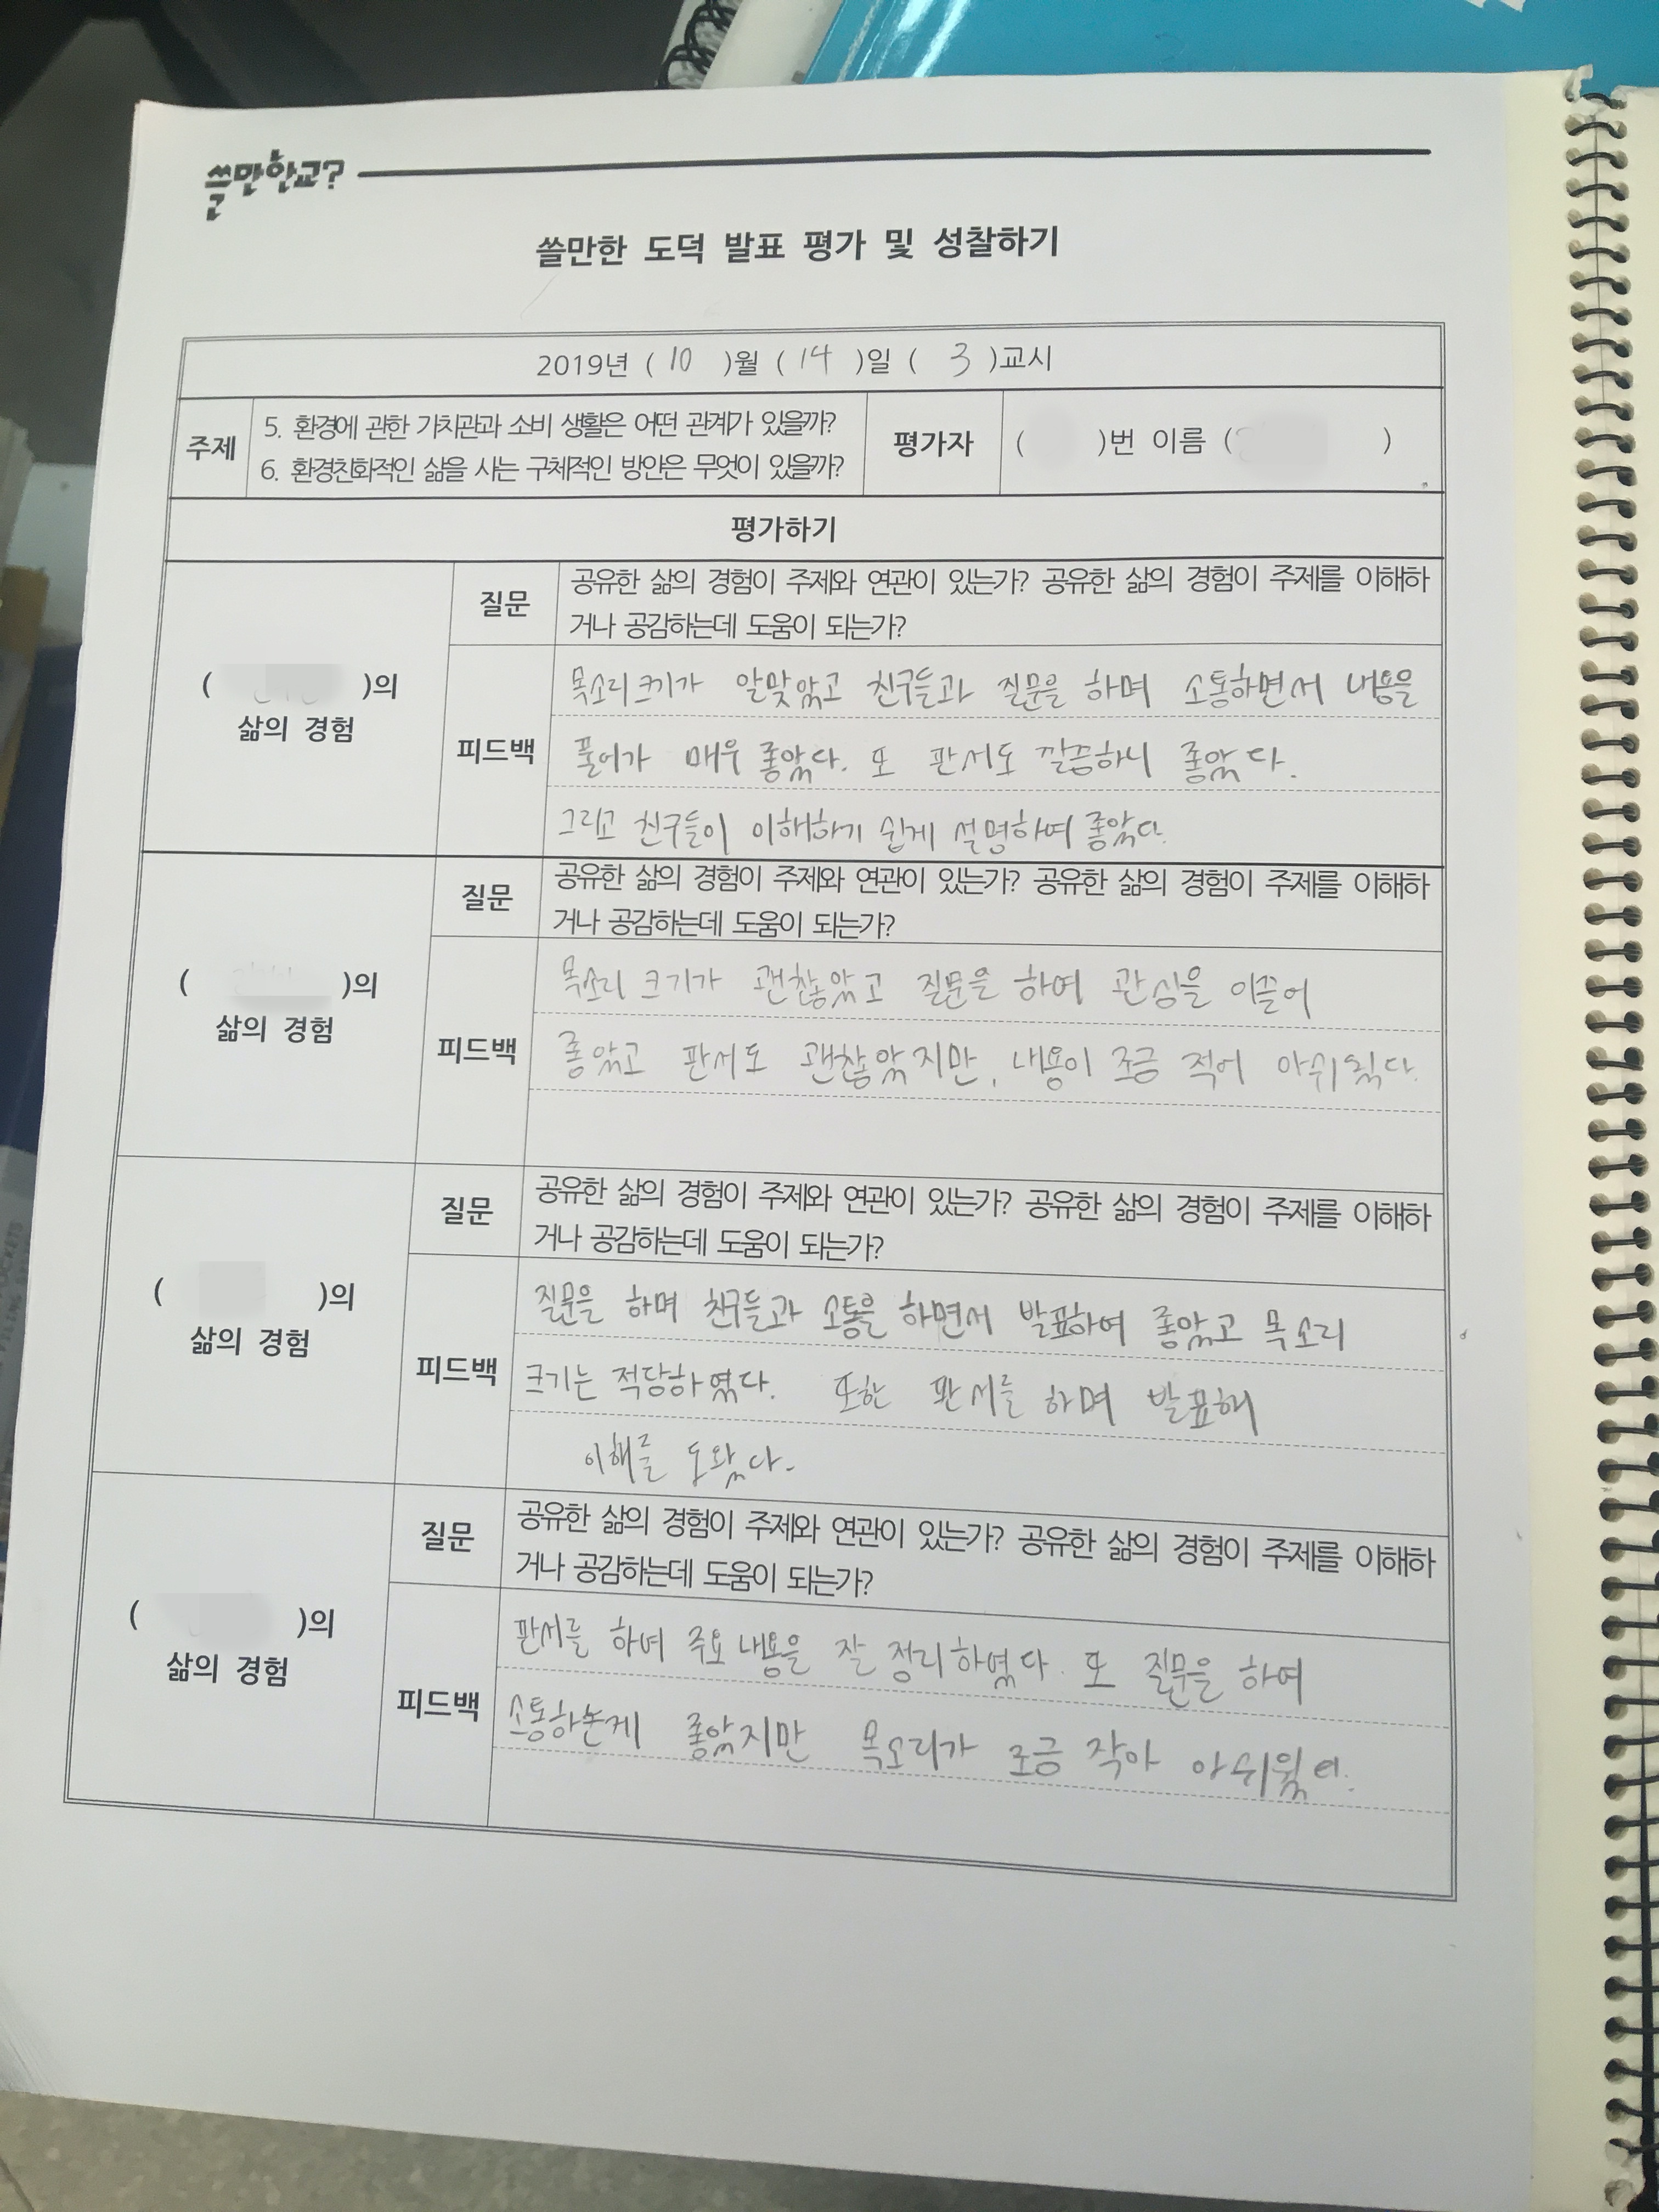 쓸만한교?
쓸만한 도덕 발표 평가 및 성찰하기
2019년 ( 10 )월 ( 14 )일 ( 3 )교시
주제
5. 환경에 관한 가치관과 소비 생활은 어떤 관계가 있을까?
6. 환경친화적인 삶을 사는 구체적인 방안은 무엇이 있을까?
평가자
( )번 이름 ( )
평가하기
( )의
삶의 경험
질문
공유한 삶의 경험이 주제와 연관이 있는가? 공유한 삶의 경험이 주제를 이해하
거나 공감하는데 도움이 되는가?
피드백
목소리 크기가 알맞았고 친구들과 질문을 하며 소통하면서 내용을
풀어가 매우 좋았다. 또 판서도 깔끔하니 좋았다.
그리고 친구들이 이해하기 쉽게 설명하여 좋았다.
( )의
삶의 경험
질문
공유한 삶의 경험이 주제와 연관이 있는가? 공유한 삶의 경험이 주제를 이해하
거나 공감하는데 도움이 되는가?
피드백
목소리 크기가 괜찮았고 질문을 하여 관심을 이끌어
좋았고 판서도 괜찮았지만, 내용이 조금 적어 아쉬웠다.
( )의
삶의 경험
질문
공유한 삶의 경험이 주제와 연관이 있는가? 공유한 삶의 경험이 주제를 이해하
거나 공감하는데 도움이 되는가?
피드백
질문을 하며 친구들과 소통을 하면서 발표하여 좋았고 목소리
크기는 적당하였다. 또한 판서를 하며 발표해
이해를 도왔다.
( )의
삶의 경험
질문
공유한 삶의 경험이 주제와 연관이 있는가? 공유한 삶의 경험이 주제를 이해하
거나 공감하는데 도움이 되는가?
피드백
판서를 하여 주요 내용을 잘 정리하였다. 또 질문을 하여
소통하는게 좋았지만 목소리가 조금 작아 아쉬웠다.